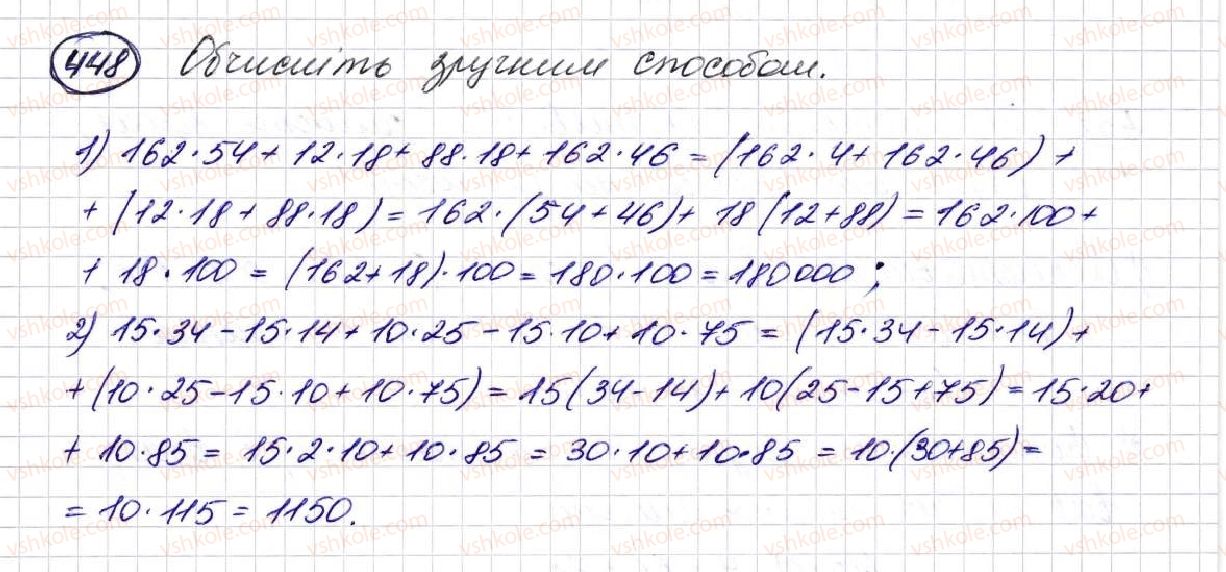 448 Обчисліть зручним способом.
1) 162·54 + 12·18 + 88·18 + 162·46 = (162·4 + 162·46) +
+ (12·18 + 88·18) = 162·(54 + 46) + 18(12+88) = 162·100 +
+ 18·100 = (162+18)·100 = 180·100 = 180000;
2) 15·34 - 15·14 + 10·25 - 15·10 + 10·75 = (15·34 - 15·14) +
+ (10·25 - 15·10 + 10·75) = 15(34-14) + 10(25-15+75) = 15·20 +
+ 10·85 = 15·2·10 + 10·85 = 30·10 + 10·85 = 10·(30+85) =
= 10·115 = 1150.